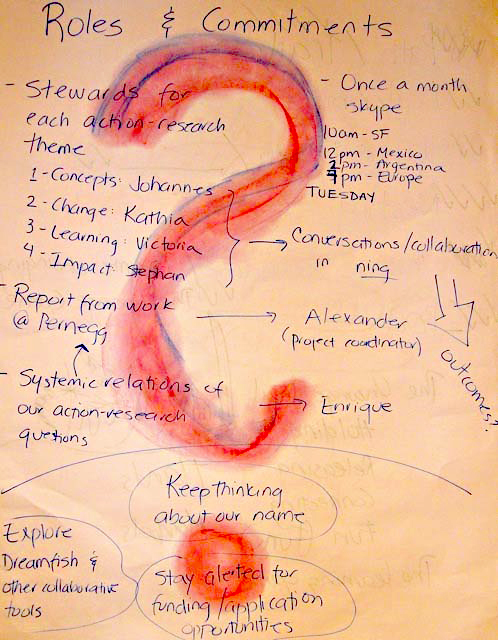 Roles & Commitments
- Stewards for
each action-research
theme
1-Concepts: Johannes
2-Change: Kathia
3-Learning: Victoria
4-Impact: Stephan
- Once a month
skype
10am-SF
12pm-Mexico
2pm-Argentina
7pm-Europe
TUESDAY
→ Conversations/collaboration
in ning
outcomes?
- Report from work
@ Pernegg
→ Alexander
(project coordinator)
- Systemic relations of
our action-research
questions
→ Enrique
Keep thinking
about our name
Explore
Dreamfish &
other collaborative
tools
Stay alerted for
funding/application
opportunities